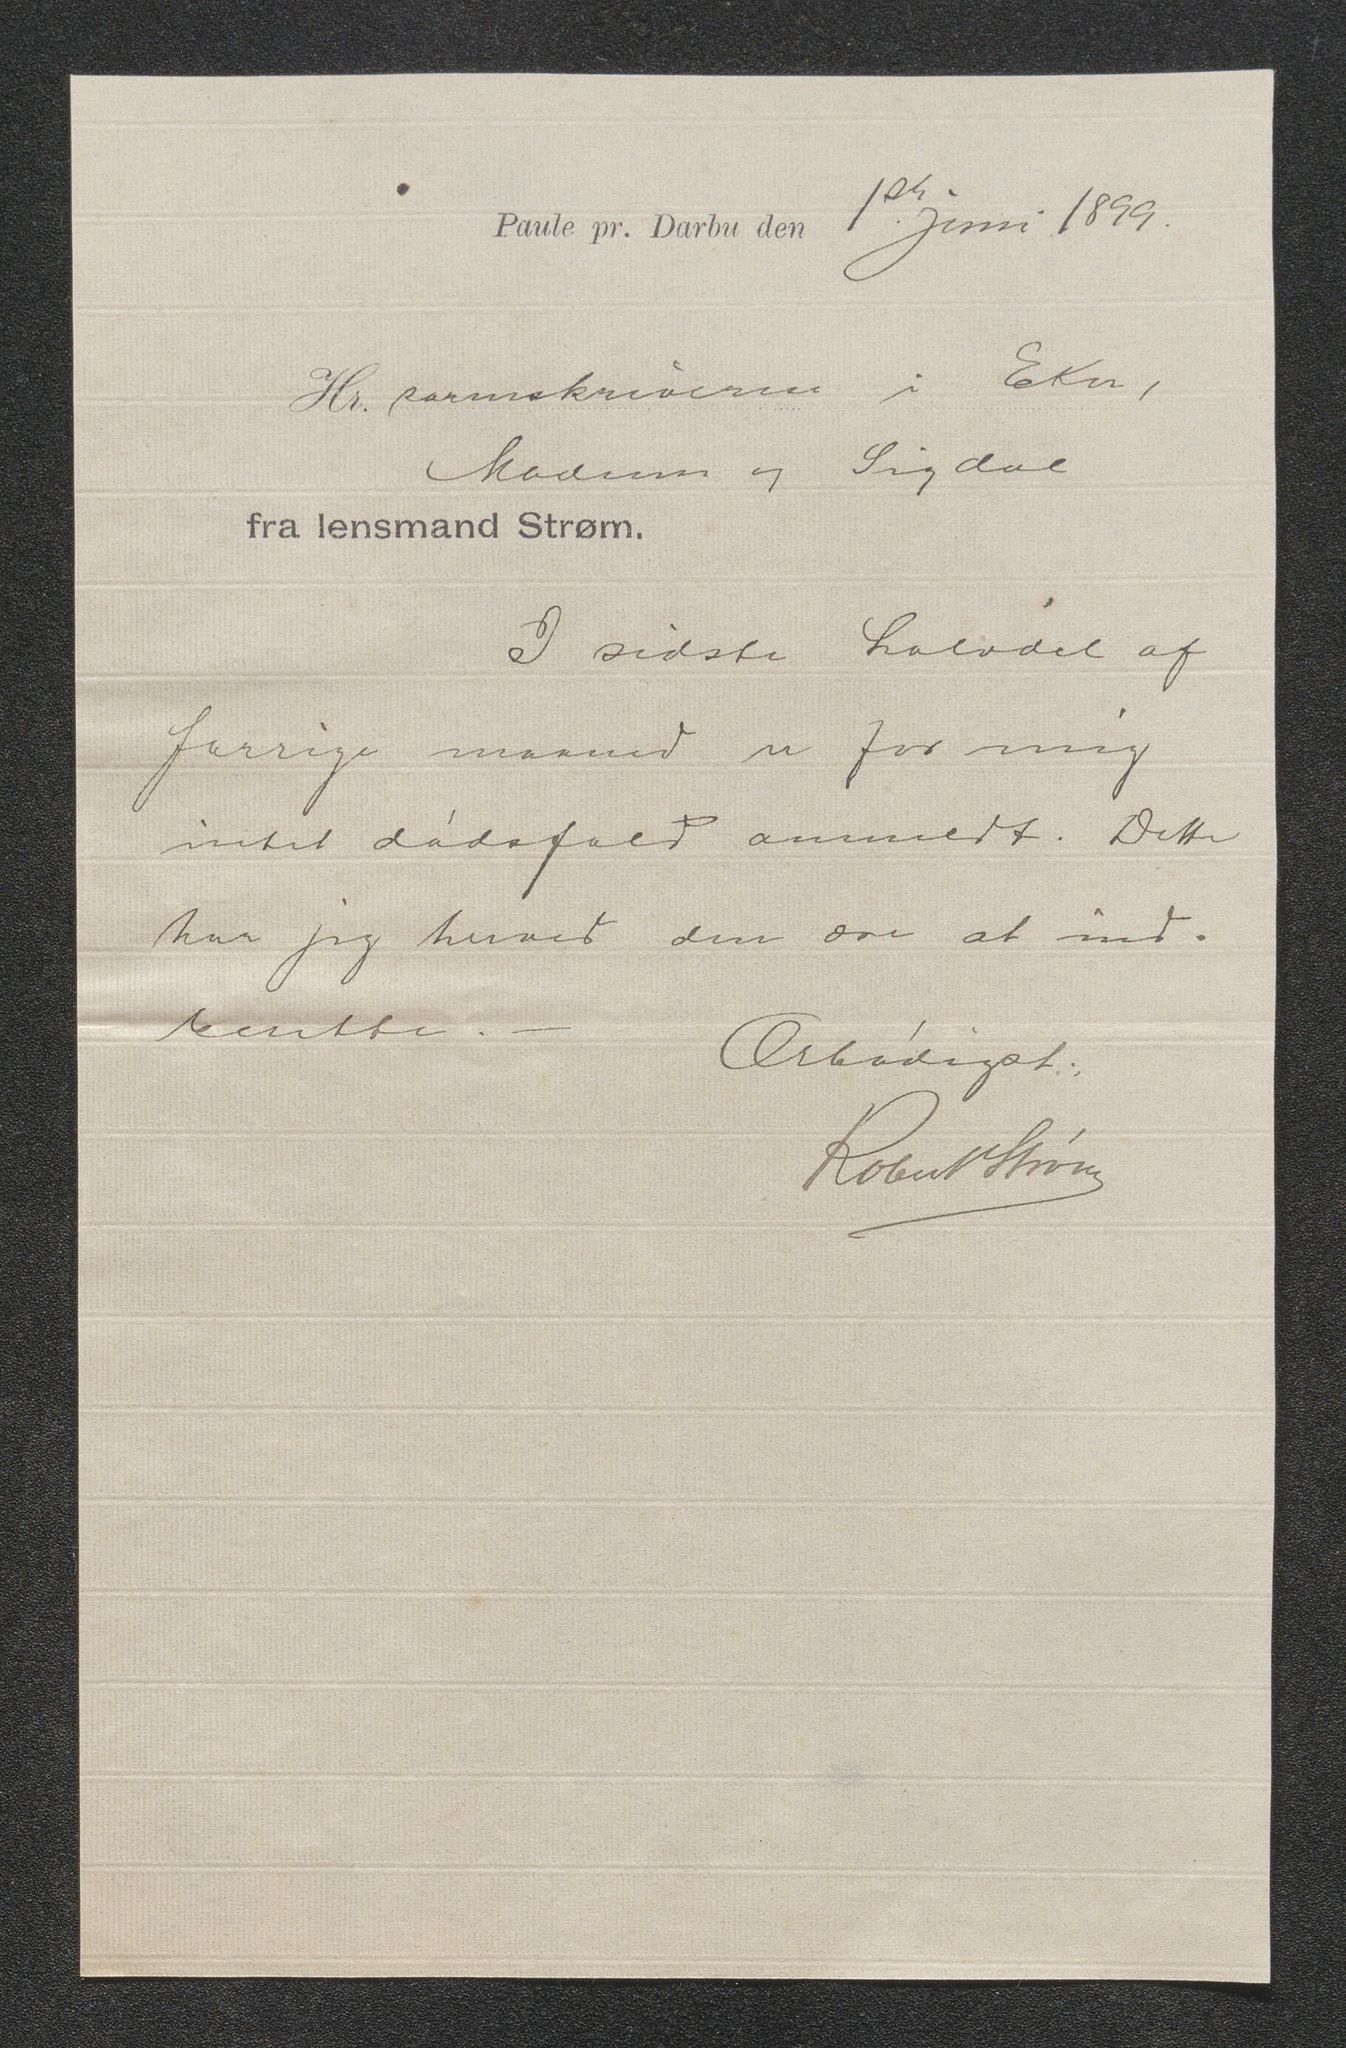 Paule pr. Darbu den 1ste juni 1899.
Hr. sorenskriveren i Eker,
Modum og Sigdal
fra lensmand Strøm.
I sidste halvdel af
forrige maaned er for mig
intet dødsfald anmeldt. Dette
har jeg herved den ære at ind-
berette. —
Ærbødigst:
Robert Strøm